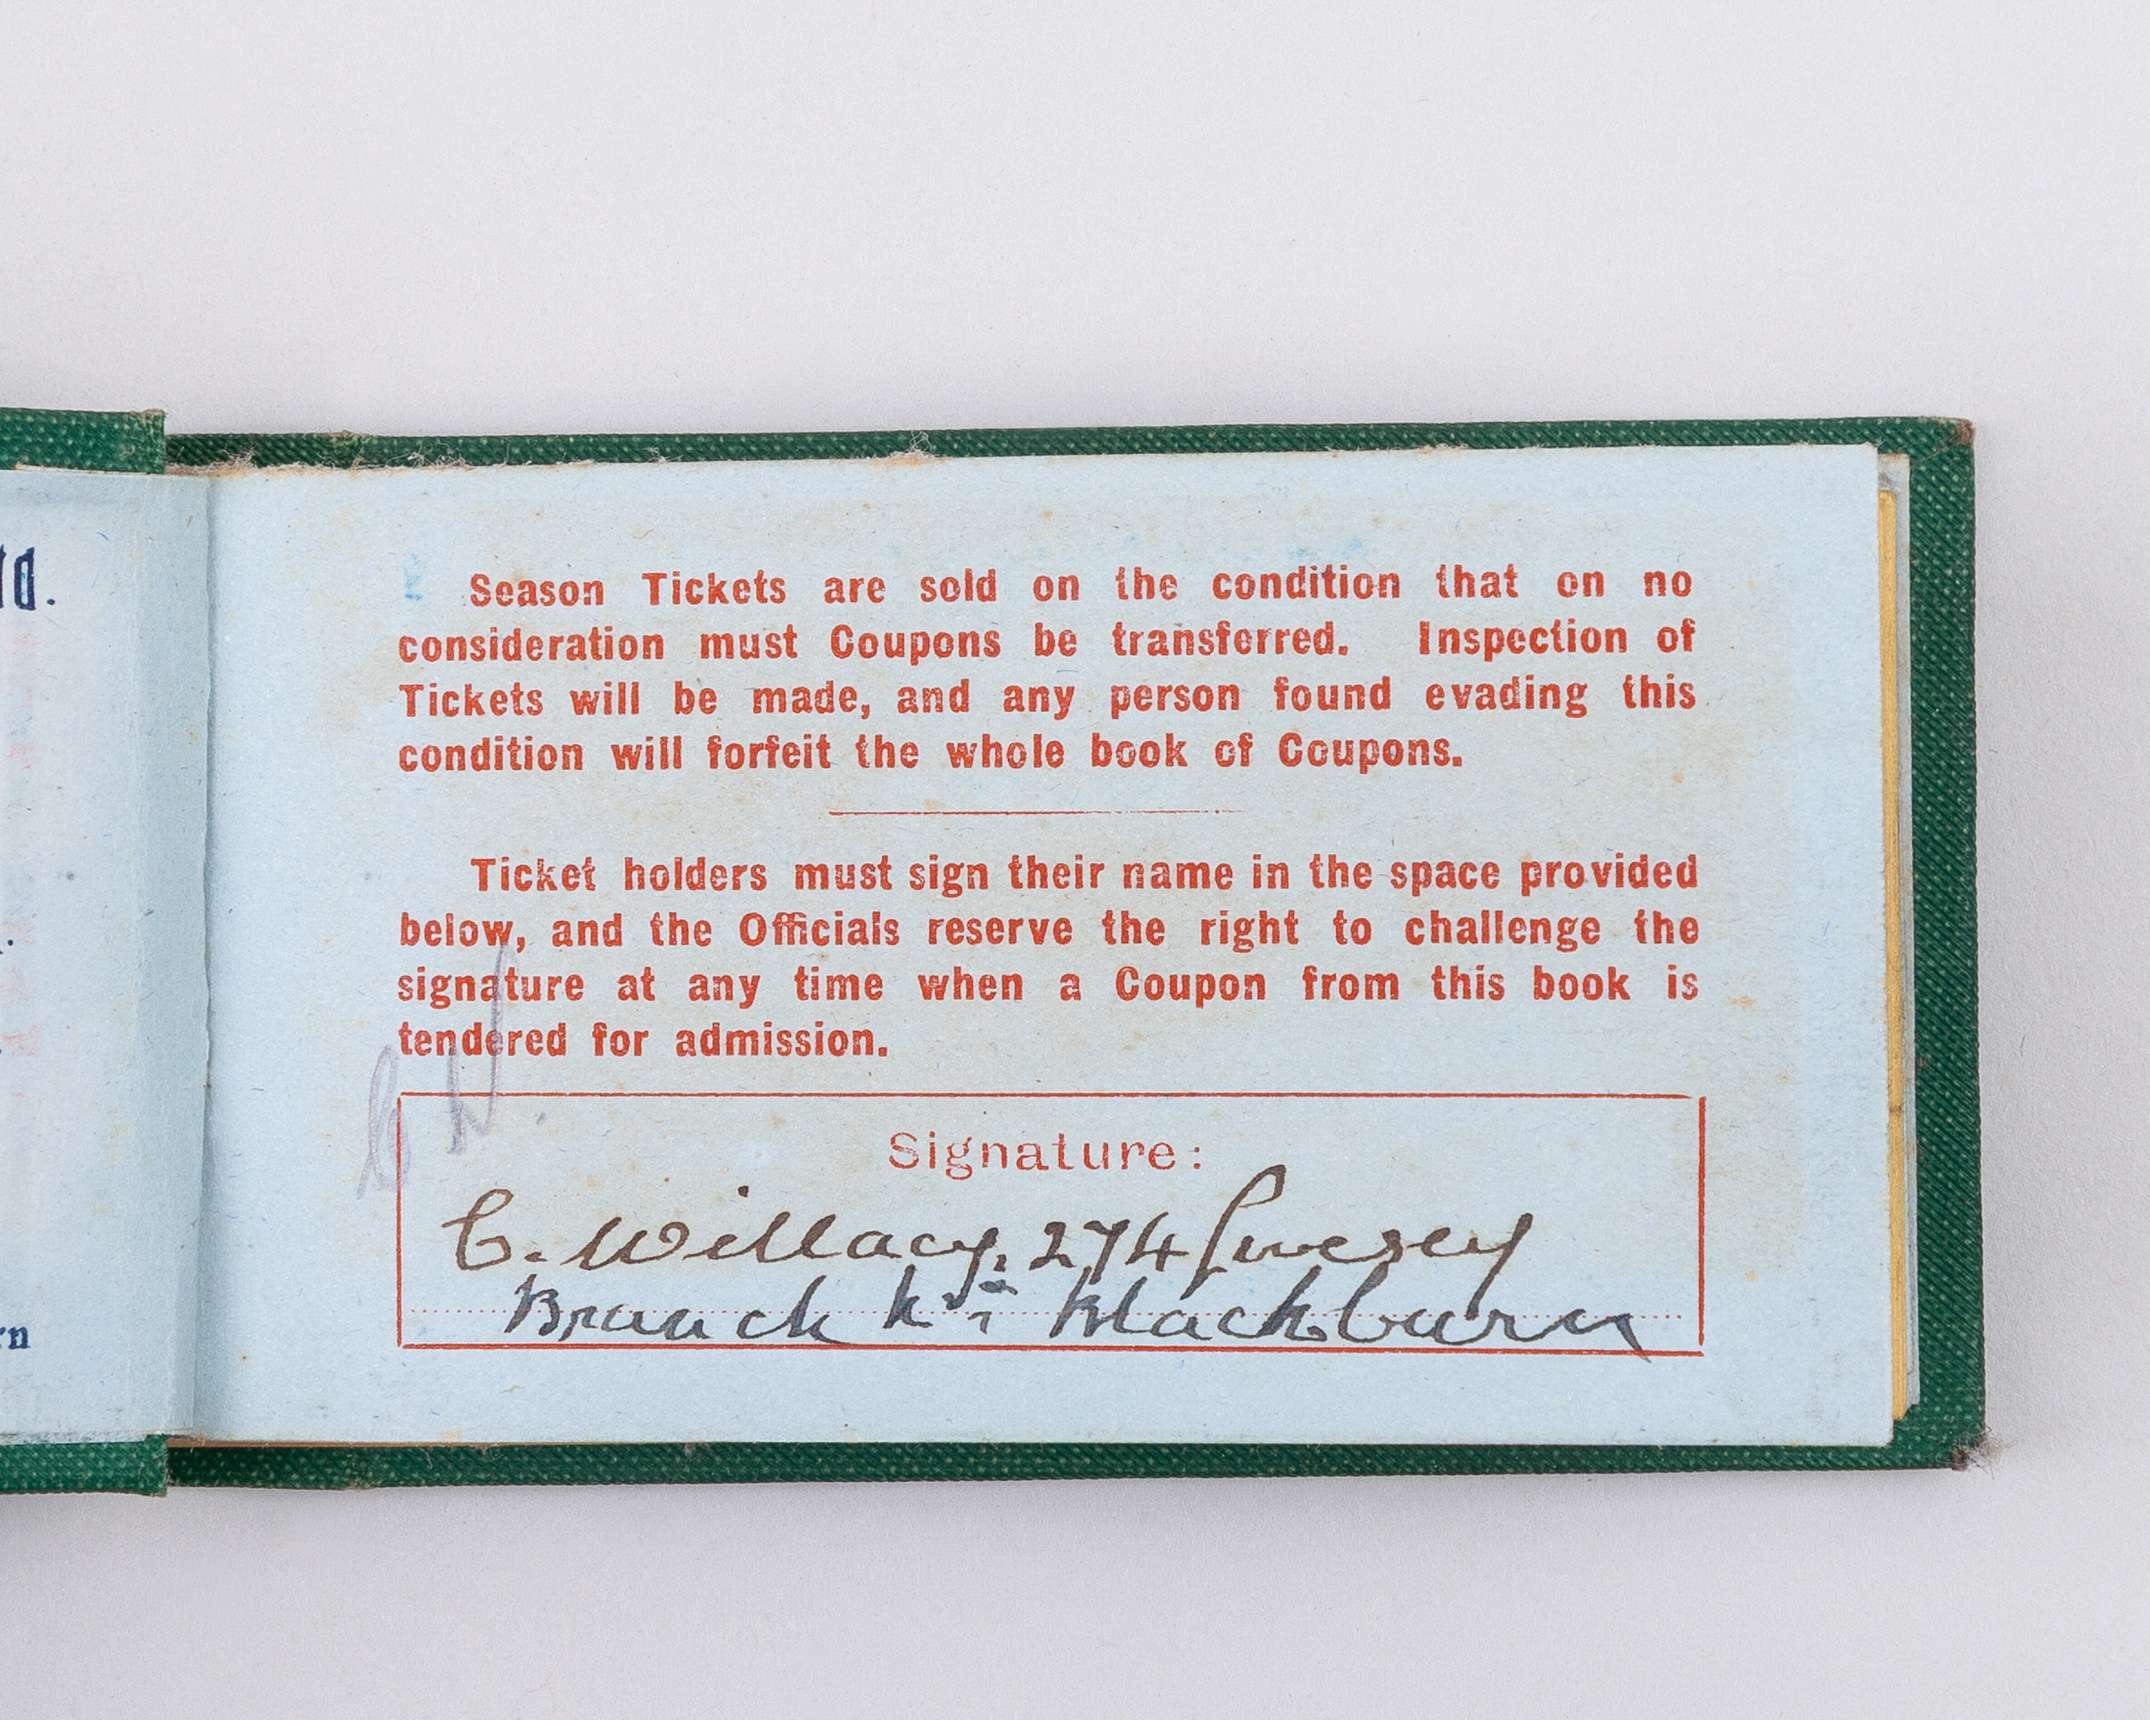 td.
rn
Season Tickets are sold on the condition that on no
consideration must Coupons be transferred. Inspection of
Tickets will be made, and any person found evading this
condition will forfeit the whole book of Coupons.
Ticket holders must sign their name in the space provided
below, and the Officials reserve the right to challenge the
signature at any time when a Coupon from this book is
tendered for admission.
Signature:
C. Willacy, 274 Livesey
Branch Blackburn